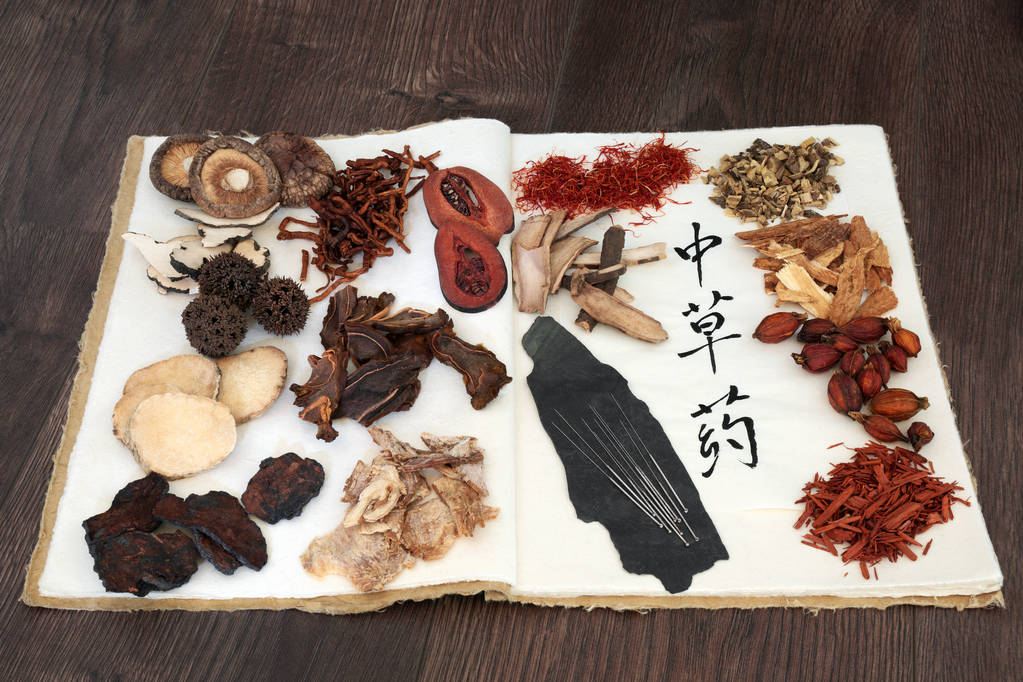 中草药